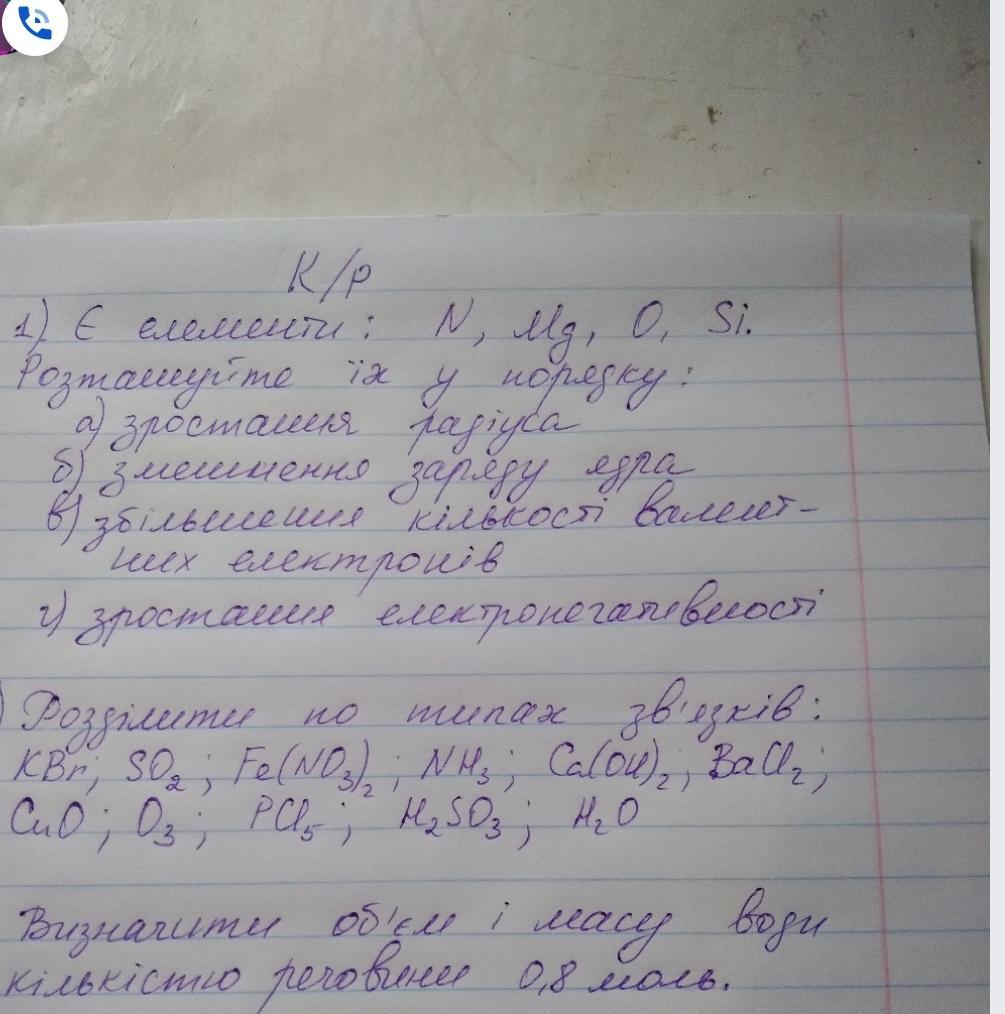 К/р
1). Є елементи: N, Mg, O, Si.
Розташуйте їх у порядку:
а) зростання радіуса
б) зменшення заряду ядра
в) збільшення кількості валент-
них електронів
г) зростання електронегативності
) Розділити по типах зв'язків:
KBr; SO₂; Fe(NO₃)₂; NH₃; Ca(OH)₂; BaCl₂;
CuO; O₃; PCl₅; H₂SO₃; H₂O
Визначити об'єм і масу води
кількістю речовини 0,8 моль.